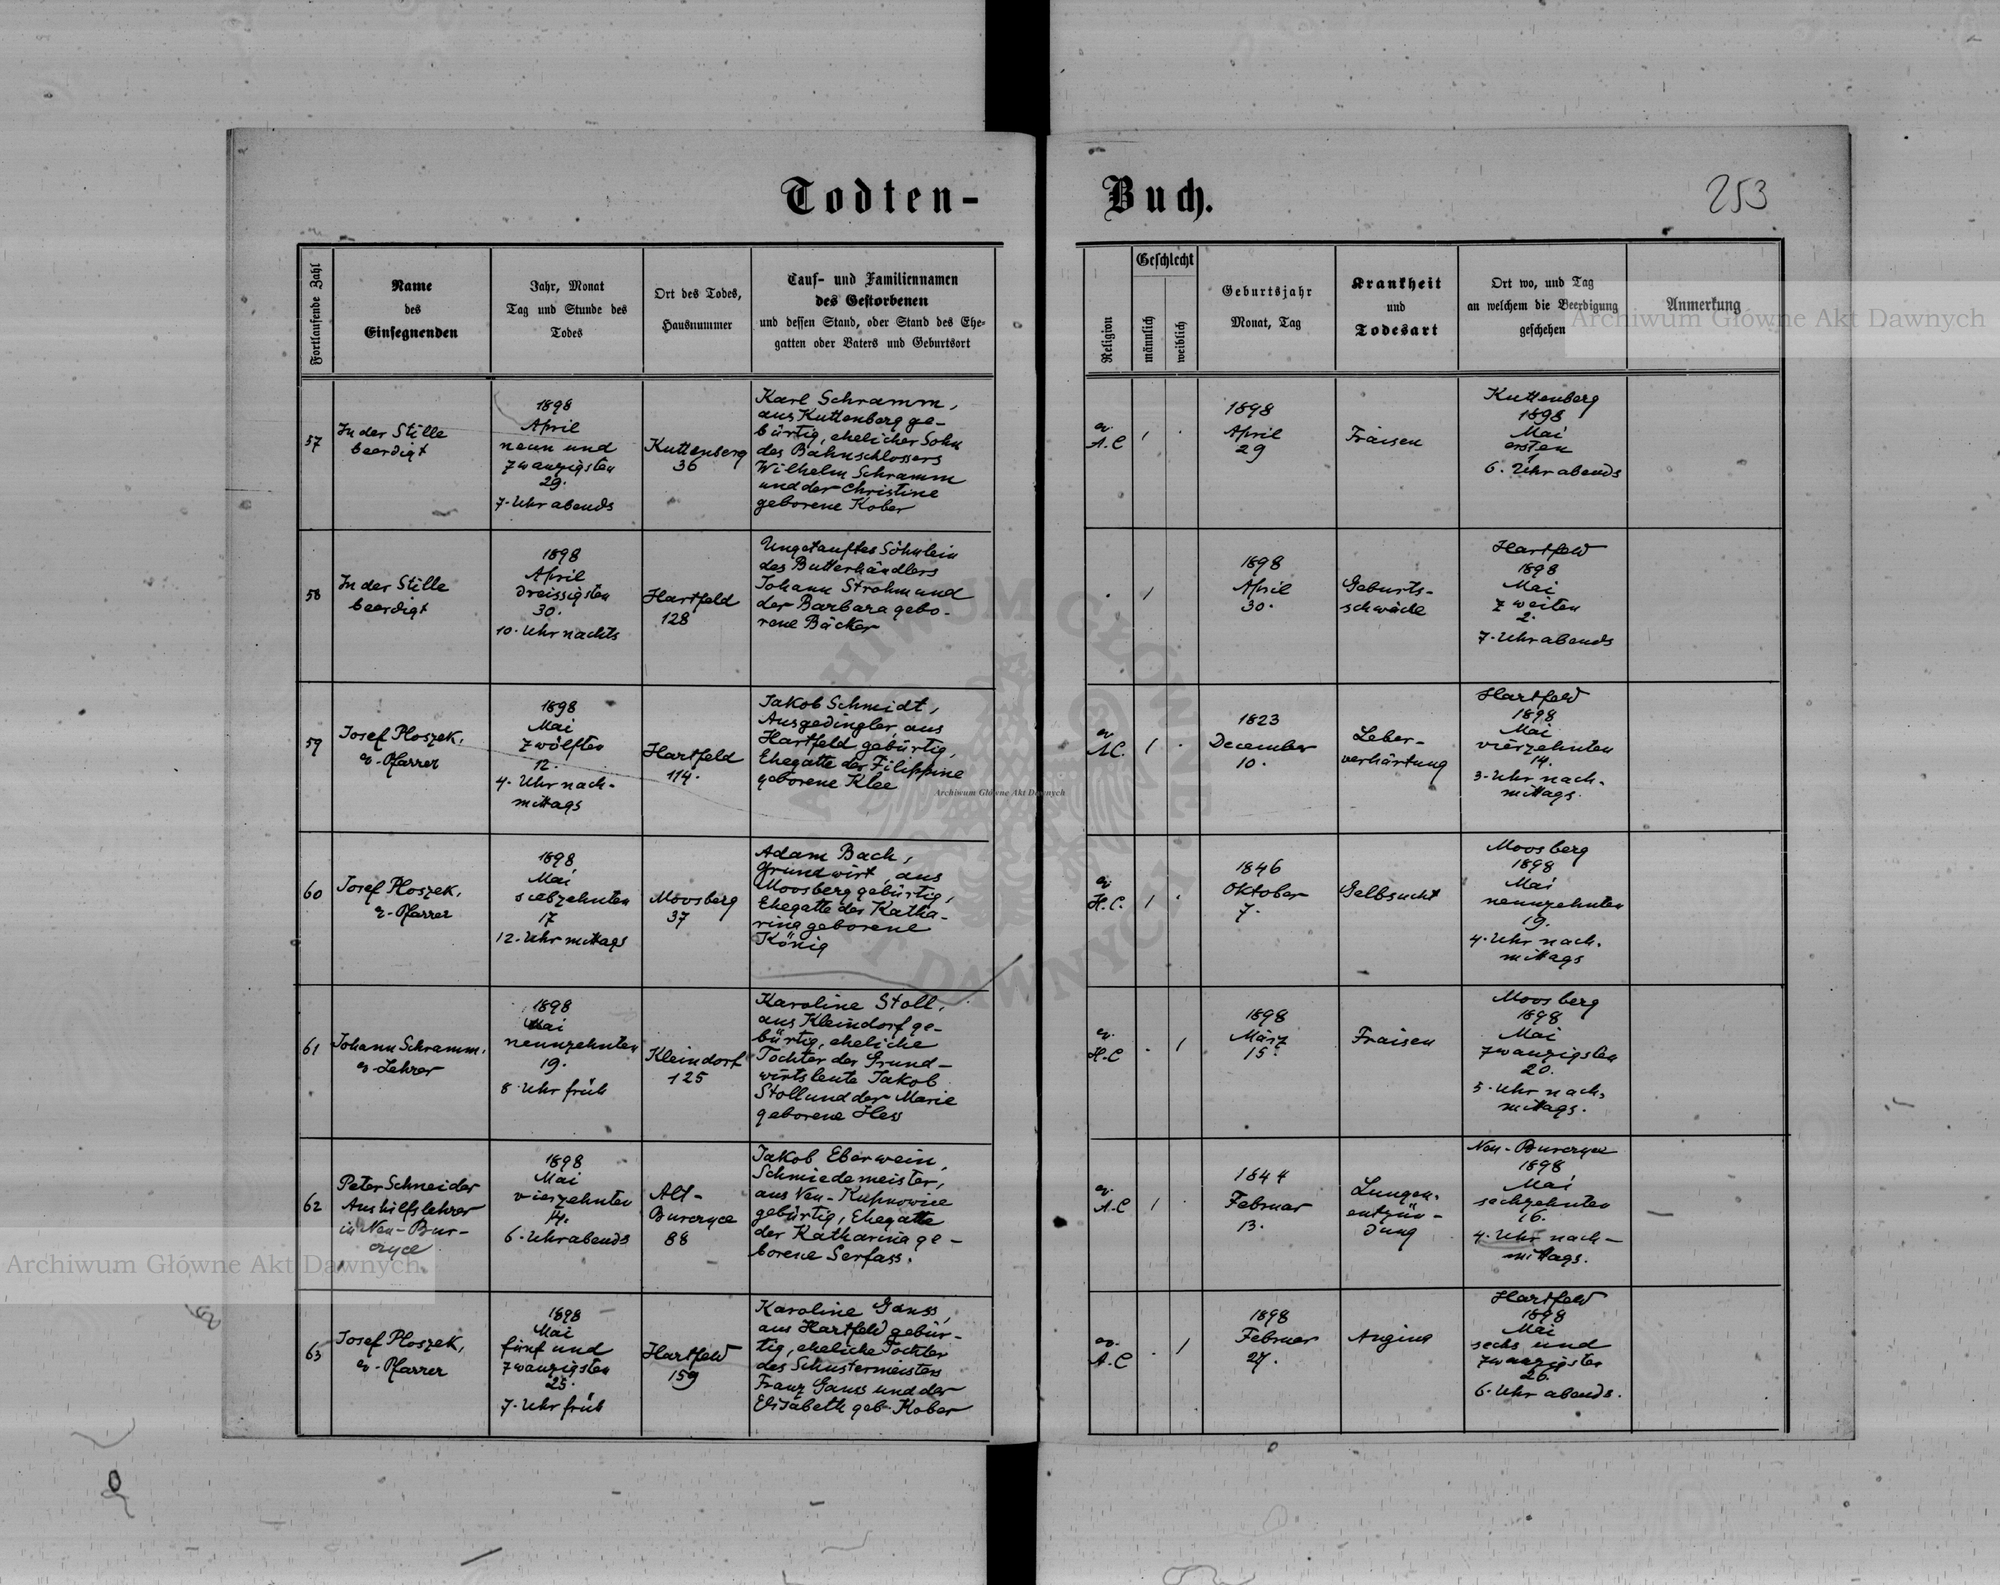 Todten-
Buch.
253
Fortlaufende Zahl
Name
des
Einsegnenden
Jahr, Monat
Tag und Stunde des
Todes
Ort des Todes,
Hausnummer
Tauf- und Familiennamen
des Gestorbenen
und dessen Stand, oder Stand des Ehe-
gatten oder Vaters und Geburtsort
Religion
Geschlecht
männlich
weiblich
Geburtsjahr
Monat, Tag
Krankheit
und
Todesart
Ort wo, und Tag
an welchem die Beerdigung
geschehen
Anmerkung
57
In der Stille
beerdigt
1898
April
neun und
zwanzigsten
29.
7. Uhr abends
Kuttenberg
36
Karl Schramm,
aus Kuttenberg ge-
bürtig, ehelicher Sohn
des Bahnschlossers
Wilhelm Schramm
und der Christine
geborene Kober
ev.
A.C
1898
April
29
Fraisen
Kuttenberg
1898
Mai
ersten
1
6. Uhr abends
58
In der Stille
beerdigt
1898
April
dreissigsten
30.
10. Uhr nachts
Hartfeld
128
Ungetauftes Söhnlein
des Butterhändlers
Johann Strohm und
der Barbara gebo-
rene Bäcker
1898
April
30.
Geburts-
schwäche
Hartfeld
1898
Mai
zweiten
2.
7. Uhr abends
59
Josef Ploszek,
ev. Pfarrer
1898
Mai
zwölften
12.
4. Uhr nach-
mittags
Hartfeld
114.
Jakob Schmidt,
Ausgedingler, aus
Hartfeld gebürtig,
Ehegatte der Filippine
geborene Klee
ev
A.C.
1823
December
10.
Leber-
verhärtung
Hartfeld
1898
Mai
vierzehnten
14.
3. Uhr nach-
mittags.
60
Josef Ploszek,
ev. Pfarrer
1898
Mai
siebzehnten
17
12. Uhr mittags
Moosberg
37
Adam Bach,
Grundwirt, aus
Moosberg gebürtig,
Ehegatte der Katha-
rina geborene
König
ev
H.C.
1846
Oktober
7.
Gelbsucht
Moosberg
1898
Mai
neunzehnten
19.
4. Uhr nach-
mittags
61
Johann Schramm,
ev. Lehrer
1898
Mai
neunzehnten
19.
8 Uhr früh
Kleindorf
125
Karoline Stoll,
aus Kleindorf ge-
bürtig, eheliche
Tochter der Grund-
wirtsleute Jakob
Stoll und der Marie
geborene Hess
ev.
H.C
1898
März
15.
Fraisen
Moosberg
1898
Mai
zwanzigsten
20.
5. Uhr nach-
mittags.
62
Peter Schneider
Aushilfslehrer
in Neu-Bur-
czyce
1898
Mai
vierzehnten
14.
6. Uhr abends
Alt-
Burczyce
88
Jakob Eberwein,
Schmiedemeister,
aus Neu-Kupnowice
gebürtig, Ehegatte
der Katharina ge-
borene Serfass.
ev.
A.C
1844
Februar
13.
Lungen-
entzün-
dung
Neu-Burczyce
1898
Mai
sechzehnten
16.
4. Uhr nach-
mittags.
63
Josef Ploszek,
ev. Pfarrer
1898
Mai
fünf und
zwanzigsten
25.
7. Uhr früh
Hartfeld
159
Karoline Gauss,
aus Hartfeld gebür-
tig, eheliche Tochter
des Schustermeisters
Franz Gauss und der
Elisabeth geb. Kober
ev.
A.C
1898
Februar
27.
Angina
Hartfeld
1898
Mai
sechs und
zwanzigsten
26.
6. Uhr abends.
Archiwum Główne Akt Dawnych
Archiwum Główne Akt Dawnych
Archiwum Główne Akt Dawnych
ARCHIWUM GŁÓWNE AKT DAWNYCH